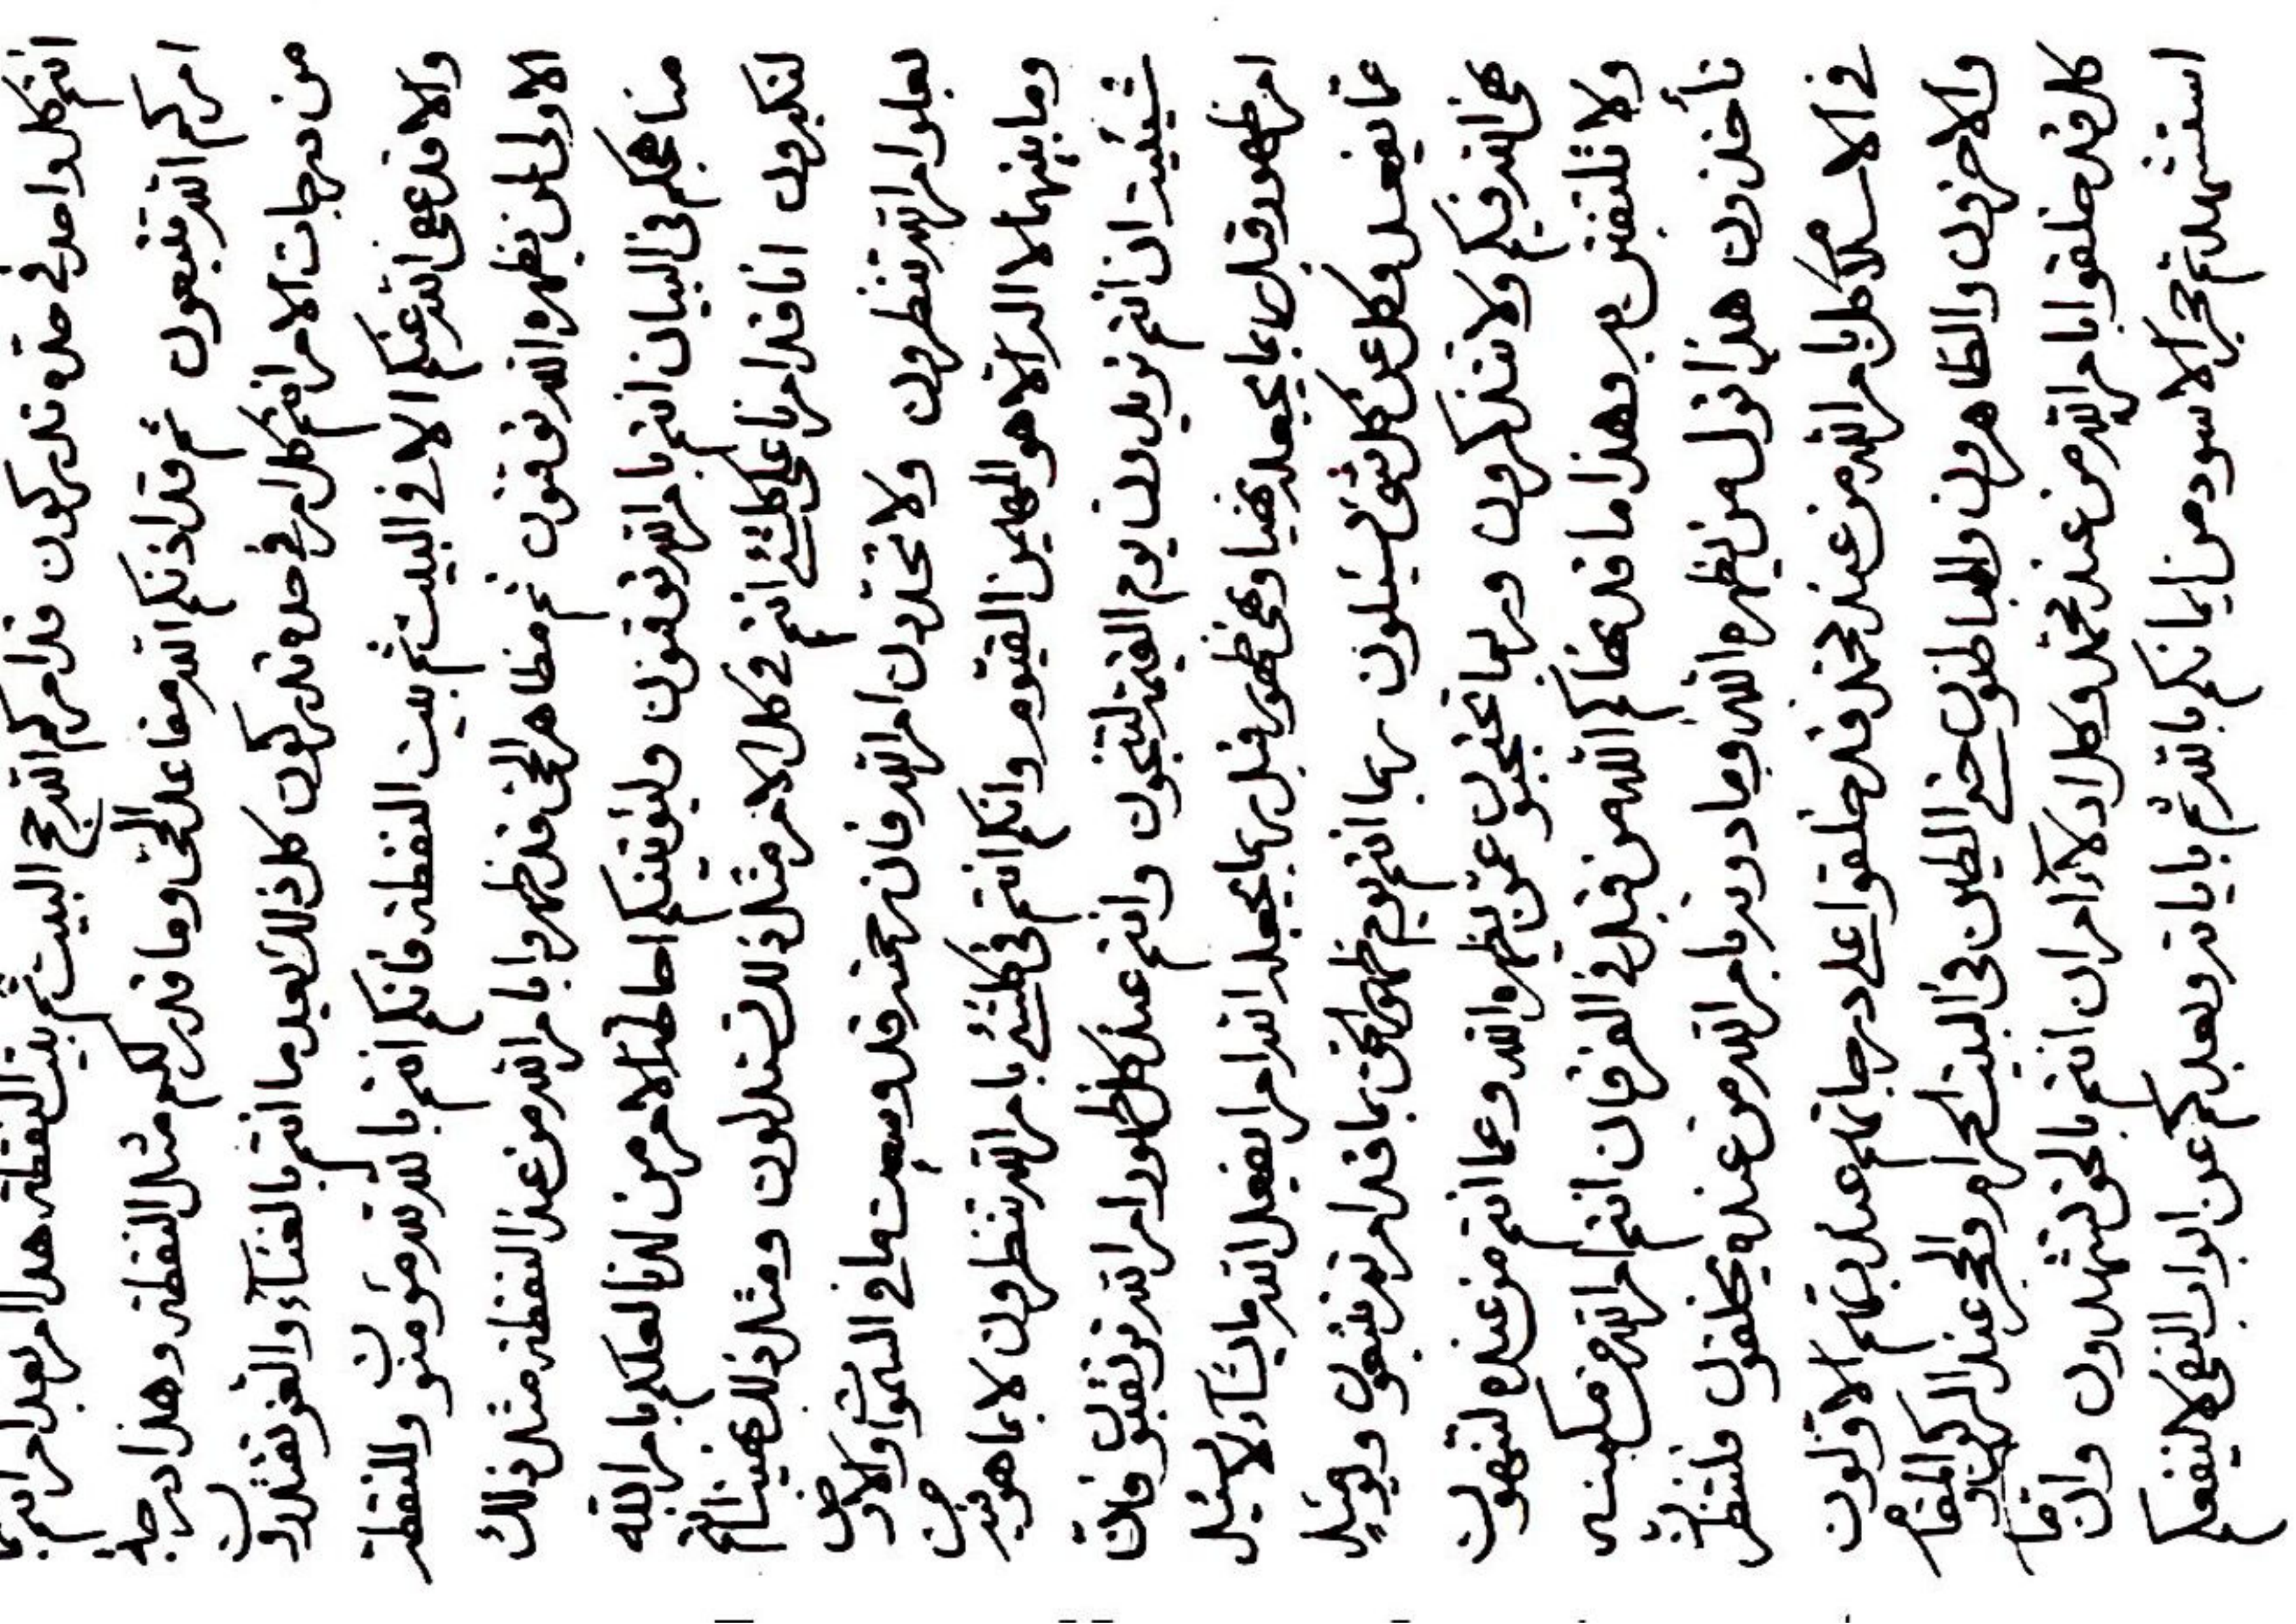 انتم كل واحد في حده تدركون قد امركم الله حج البيت ثم بيت النقطة هذا امر بعد امر انتم بما
امركم الله تتبعون ثم قد اذنكم الله مقاعد الحي وما قدر لكم مثل النقطة وهذا درجة
من درجات الامر انتم كل امر في حده تدركون كل ذلك بعد ما انتم بالغناء والعز تقتدرون
والا قد عفى الله عنكم الا في البيت ثم بيت النقطة فانكم انتم بالله تؤمنون وللنقطة
الاولى لمن يظهره الله توقنون ثم مظاهر الحي قد ظهروا بامر الله من عند النقطة مثل ذلك
مناهجكم في البيان انتم بامر الله توقنون احاطة الامر من لدنا لعلكم بامر الله
لتكبرون انا قد امرنا على كلشئ انتم في كل الامر مثل ذلك تستدلون ومثل ذلك نهينا انتم
بعلو امر الله تنظرون ولا تحددون امر الله فان رحمته قد وسعت ما في السموات والارض
وما بينهما لا اله الا هو المهيمن القيوم وانكم انتم في كلشئ بامر الله تنظرون لا بما هو
شيئيته ان انتم تريدون يوم القيمة لتنجون وانتم عند كل ظهور امر الله توقنون فان
امر ظهور قبل ربما يجعله نهيا ونهي ظهور قبل ربما يجعله الله امرا يفعل الله ما يشاء لا يسئل
عما يفعل وكل عن كل شئ يسئلون ربما انتم يوم ظهور الحق بما قد امرتم تتبعون ويومئذ
نهى الله فيكم ولا تتذكرون وربما تحتجبون عمن يظهره الله وعما انتم من عنده لتنهون
ولا تلتفتن به وهذا ما قد نهاكم الله من قبل في الفرقان انتم امر الله من مكمنه
تأخذون هذا نزل من يظهره الله وما دونه بامر الله من عنده يخلقون فلتنظرن
في الاسلام كل بامر الله من عند محمد قد خلقوا على درجاتهم عند ربهم الاولون
والاخرون والظاهرون والباطنون حتى الطين في البيت الحرام والحجر عند الركن والمقام
كل قد خلقوا بامر الله من عند محمد وكل ادلاء امره ان انتم بالحق لتشهدون وان ما
استشهد ثم حجر الاسود من ايمانكم بالله ثم باياته وبعدكم عن ابواب النفى لا ينفعكم